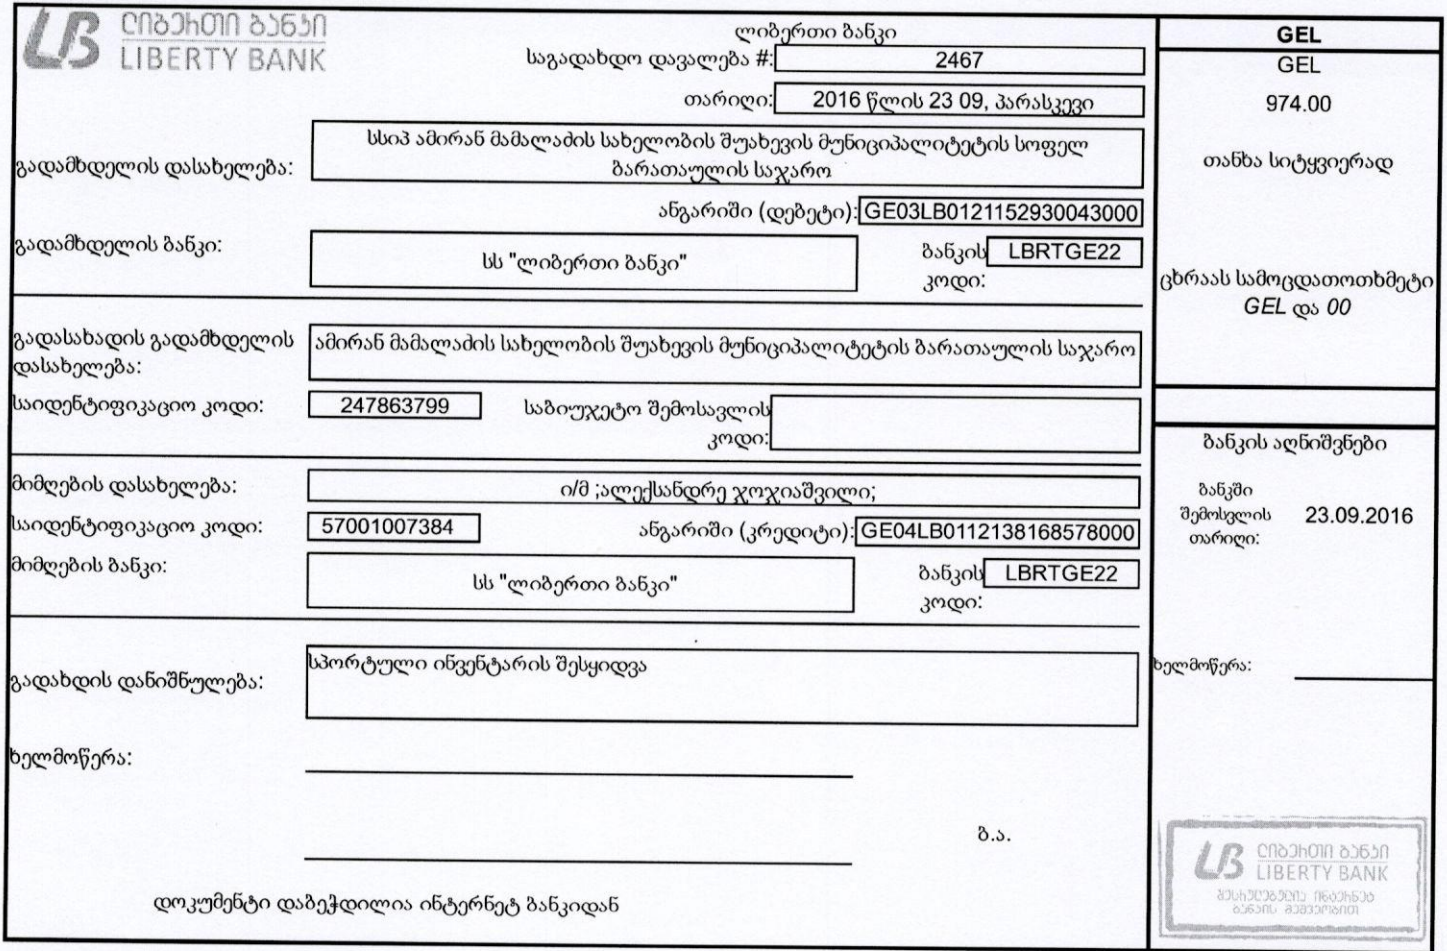 ლიბერთი ბანკი
LIBERTY BANK
ლიბერთი ბანკი
საგადახდო დავალება #: 2467
თარიღი: 2016 წლის 23 09, პარასკევი
გადამხდელის დასახელება:
სსიპ ამირან მამალაძის სახელობის შუახევის მუნიციპალიტეტის სოფელ
ბარათაულის საჯარო
ანგარიში (დებეტი): GE03LB0121152930043000
გადამხდელის ბანკი:
სს "ლიბერთი ბანკი"
ბანკის
კოდი:
LBRTGE22
გადასახადის გადამხდელის
დასახელება:
ამირან მამალაძის სახელობის შუახევის მუნიციპალიტეტის ბარათაულის საჯარო
საიდენტიფიკაციო კოდი: 247863799
საბიუჯეტო შემოსავლის
კოდი:
მიმღების დასახელება: ი/მ ;ალექსანდრე ჯოჯიაშვილი;
საიდენტიფიკაციო კოდი: 57001007384
ანგარიში (კრედიტი): GE04LB0112138168578000
მიმღების ბანკი:
სს "ლიბერთი ბანკი"
ბანკის
კოდი:
LBRTGE22
გადახდის დანიშნულება:
სპორტული ინვენტარის შესყიდვა
ხელმოწერა:
ბ.ა.
დოკუმენტი დაბეჭდილია ინტერნეტ ბანკიდან
GEL
GEL
974.00
თანხა სიტყვიერად
ცხრაას სამოცდათოთხმეტი
GEL და 00
ბანკის აღნიშვნები
ბანკში
შემოსვლის
თარიღი:
23.09.2016
ხელმოწერა:
ლიბერთი ბანკი
LIBERTY BANK
შესრულებულია ინტერნეტ
ბანკის მეშვეობით